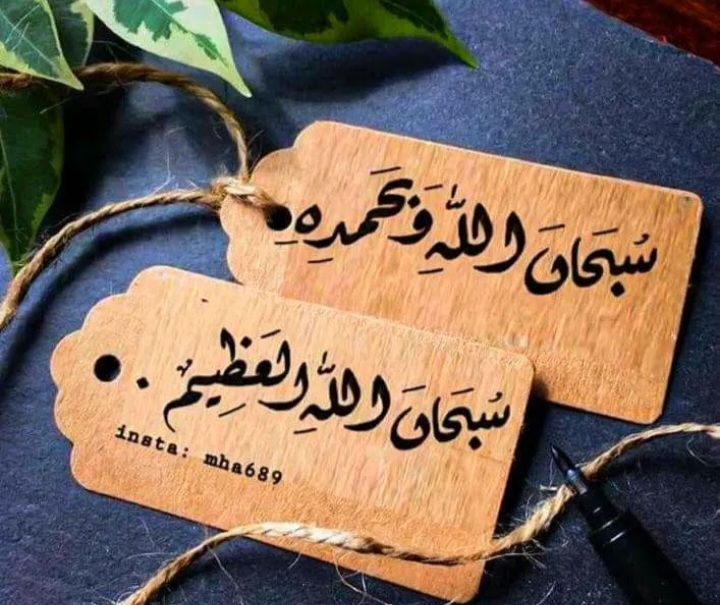 سُبْحَانَ اللّٰهِ وَبِحَمدِهِ
سُبْحَانَ اللّٰهِ العَظِيمْ .
insta: mha689